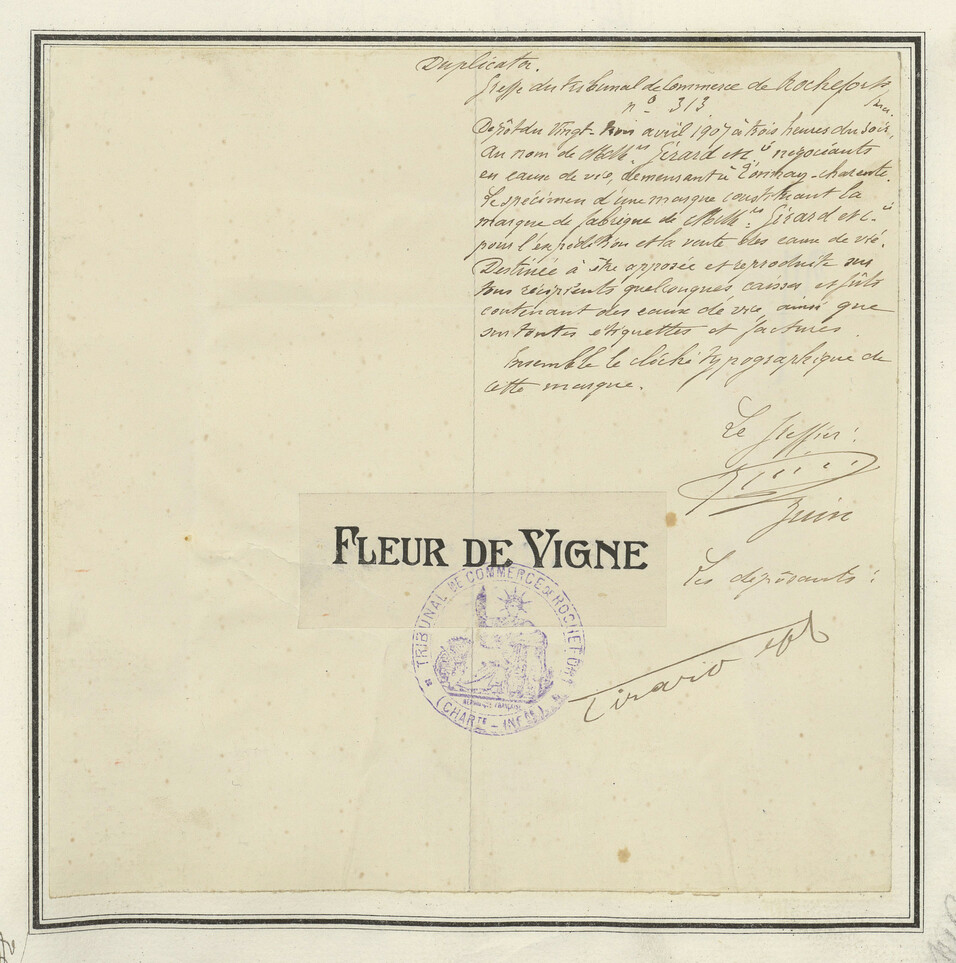 Duplicata.
Greffe du tribunal de Commerce de Rochefort s/mer.
nº 313
Dépôt du Vingt-trois avril 1907 à trois heures du soir,
Au nom de MM.rs Gérard et C.ie négociants
en eaux de vie, demeurant à Tonnay-charente.
Le spécimen d'une marque constituant la
marque de fabrique de MM.rs Gérard et C.ie
pour l'expédition et la vente des eaux de vie.
Destinée à être apposée et reproduite sur
tous récipients quelconques caisses et fûts
contenant des eaux de vie ainsi que
sur toutes étiquettes et factures.
Ensemble le cliché typographique de
cette marque.
Le Greffier:
Les déposants:
FLEUR DE VIGNE
TRIBUNAL DE COMMERCE DE ROCHEFORT
RÉPUBLIQUE FRANÇAISE
(CHARTE - INFRE)